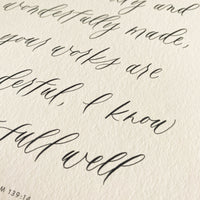 and
wonderfully made,
your works are
derful, I know
full well
M 139:14